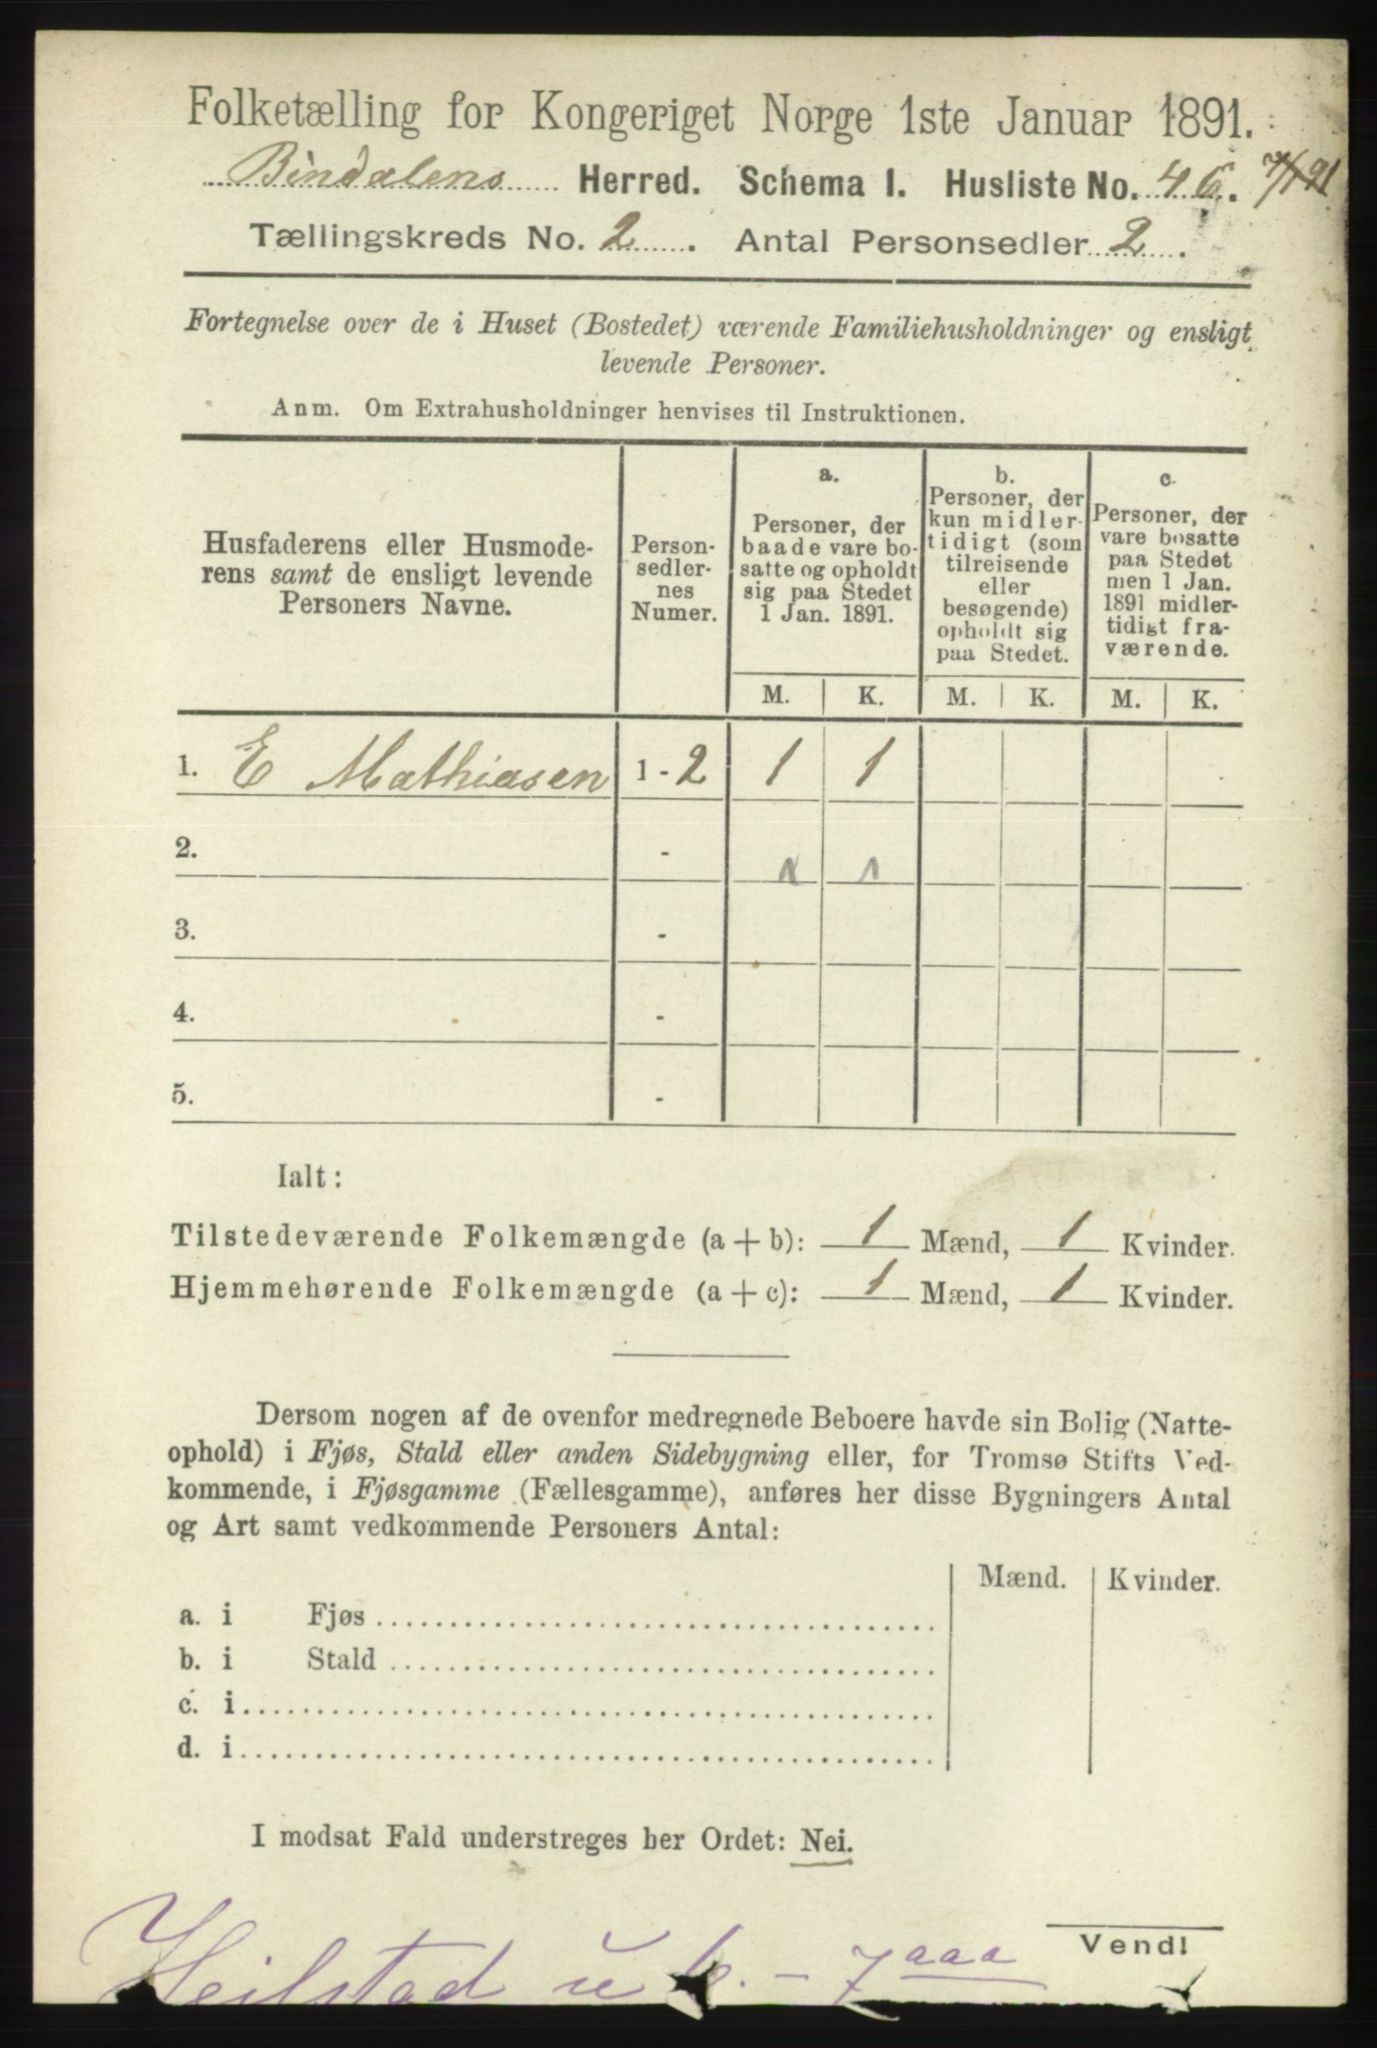 Folketælling for Kongeriget Norge 1ste Januar 1891.
Bindalens Herred. Schema 1. Husliste No. 46. 7/1 91
Tællingskreds No. 2. Antal Personsedler 2.
Fortegnelse over de i Huset (Bostedet) værende Familiehusholdninger og ensligt
levende Personer.
Anm. Om Extrahusholdninger henvises til Instruktionen.
Husfaderens eller Husmode-
rens samt de ensligt levende
Personers Navne.
Person-
sedler-
nes
Numer.
a.
Personer, der
baade vare bo-
satte og opholdt
sig paa Stedet
1 Jan. 1891.
b.
Personer, der
kun midler-
tidigt (som
tilreisende
eller
besøgende)
opholdt sig
paa Stedet.
c.
Personer, der
vare bosatte
paa Stedet
men 1 Jan.
1891 midler-
tidigt fra-
værende.
M. K. M. K. M. K.
1. E Mathiasen 1 - 2 1 1
2. - 1 1
3. -
4. -
5. -
Ialt:
Tilstedeværende Folkemængde (a + b): 1 Mænd, 1 Kvinder.
Hjemmehørende Folkemængde (a + c): 1 Mænd, 1 Kvinder.
Dersom nogen af de ovenfor medregnede Beboere havde sin Bolig (Natte-
ophold) i Fjøs, Stald eller anden Sidebygning eller, for Tromsø Stifts Ved-
kommende, i Fjøsgamme (Fællesgamme), anføres her disse Bygningers Antal
og Art samt vedkommende Personers Antal:
Mænd. Kvinder.
a. i Fjøs
b. i Stald
c. i
d. i
I modsat Fald understreges her Ordet: Nei.
Vend!
Heilstad u k. - 7 aaa